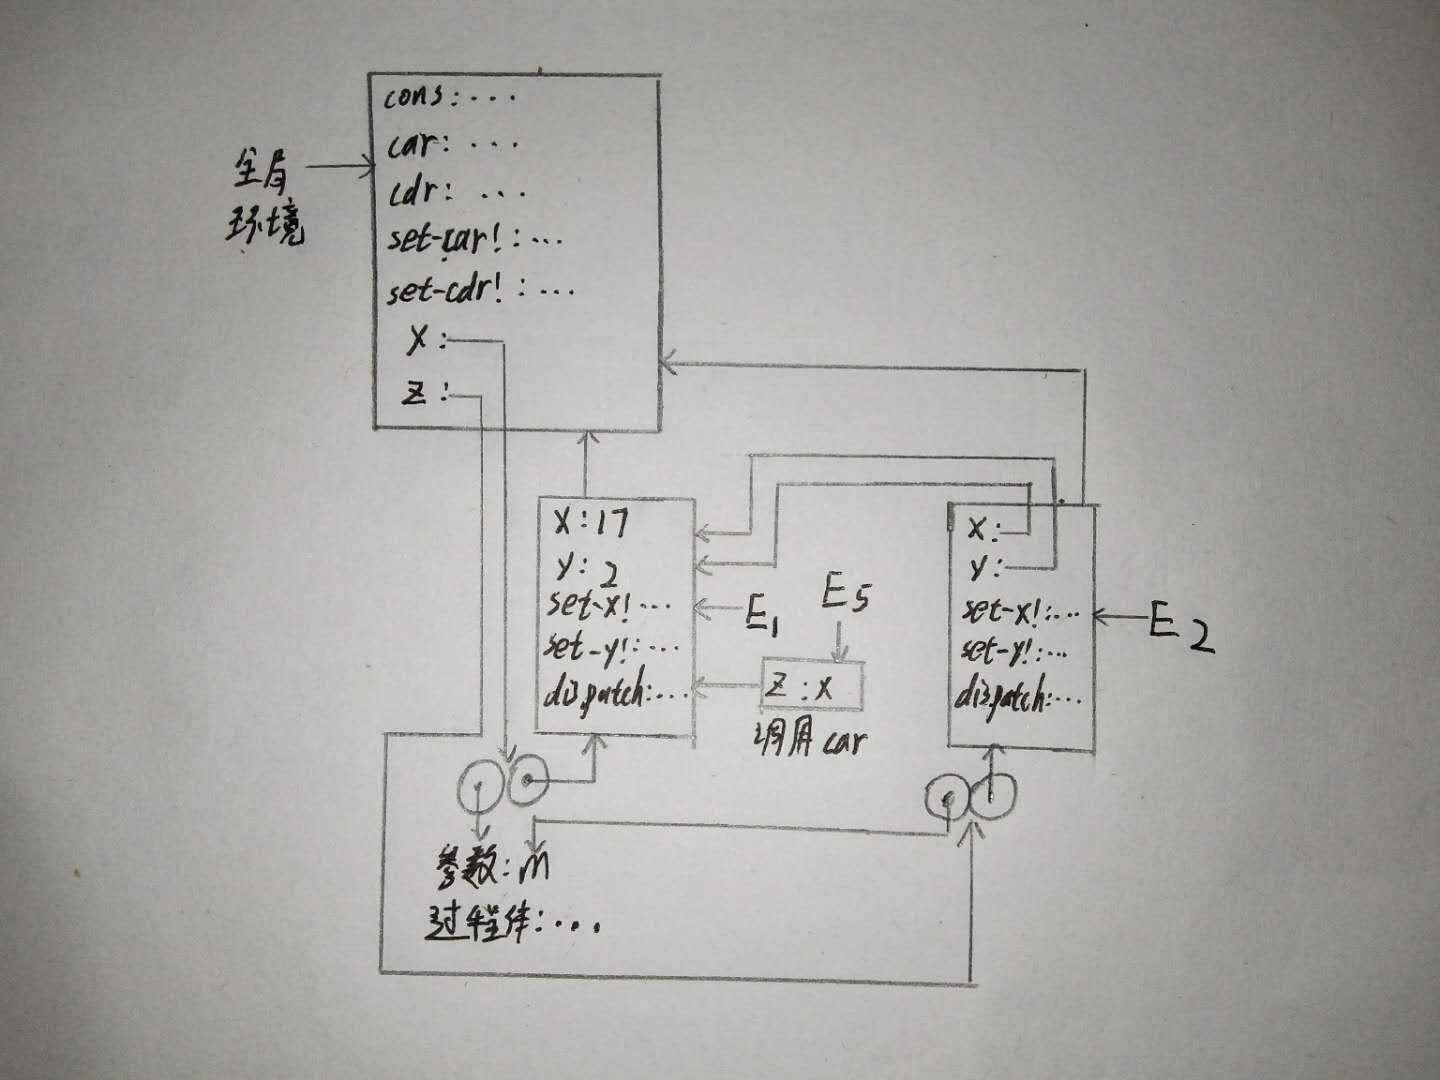 cons: ...
car: ...
cdr: ...
set-car! : ...
set-cdr! : ...
X :
Z :
全局
环境
X : 17
Y : 2
set-x! ...
set-y! : ...
dispatch: ...
E1
E5
Z : X
调用 car
X :
Y :
set-x! : ...
set-y! : ...
dispatch: ...
E2
参数 : m
过程体 : ...